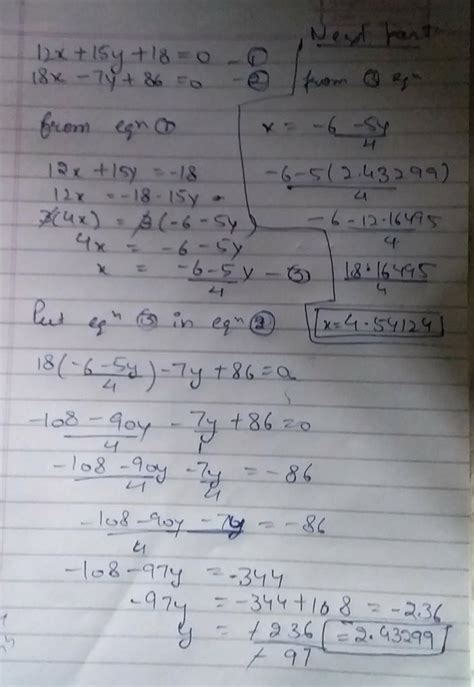 12x + 15y + 18 = 0 - ①
18x - 7y + 86 = 0 - ②
from eqn ①
12x + 15y = -18
12x = -18 - 15y
3(4x) = 3(-6 - 5y)
4x = -6 - 5y
x = -6 - 5/4 y - ③
Put eqn ③ in eqn ②
18(-6 - 5y/4) - 7y + 86 = 0
-108 - 90y/4 - 7y/1 + 86 = 0
-108 - 90y/4 - 7y/4 = -86
-108 - 90y - 7y/4 = -86
-108 - 97y = -344
-97y = -344 + 108 = -236
y = -236/-97 = 2.43299
Next part
from ③ eqn
x = -6 - 5y/4
-6 - 5(2.43299)/4
-6 - 12.16495/4
18.16495/4
x = 4.54124